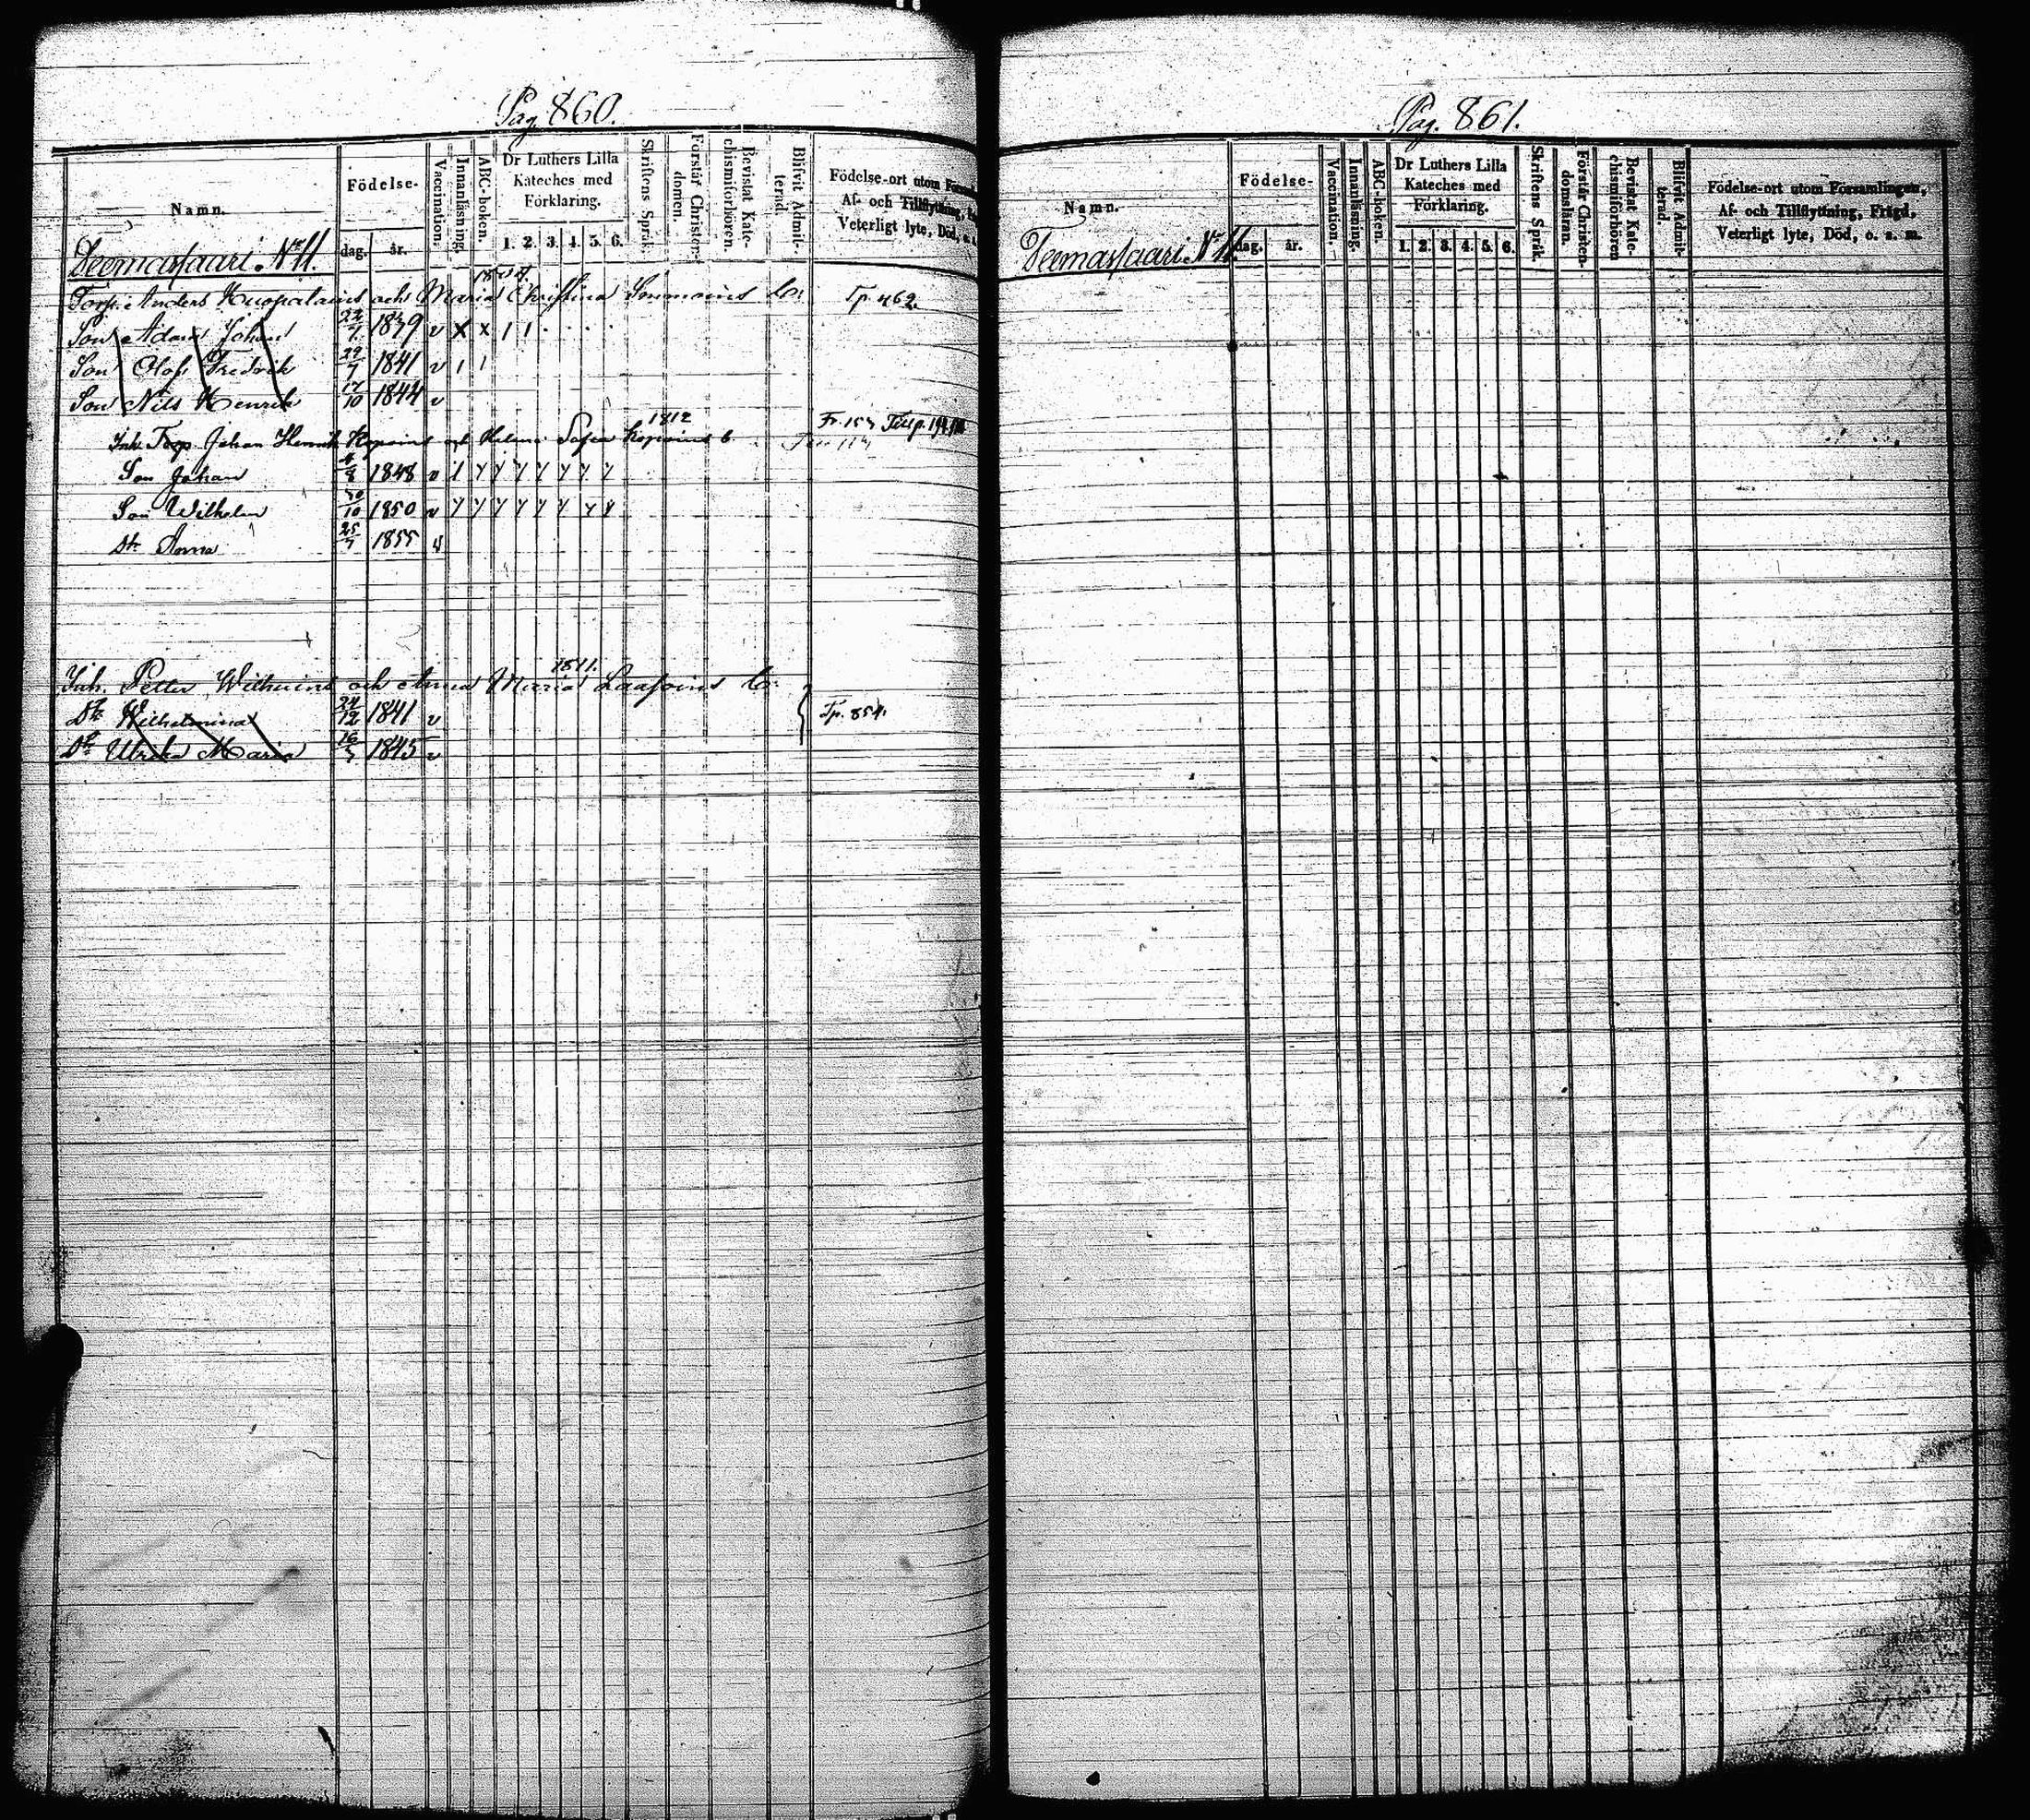 Pag. 860.
Namn.
Födelse-
dag. år.
Vaccination.
Innanläsning.
ABC-boken.
Dr Luthers Lilla
Kateches med
Förklaring.
1. 2. 3. 4. 5. 6.
Skriftens Språk.
Förstår Christen-
domen.
Bevistat Kate-
chismiförhören.
Blifvit Admit-
terad.
Födelse-ort utom
Af- och Tillflyttning,
Veterligt lyte, Död,
Teemassaari. No 11.
Torp. Anders och Maria Christina b:
Tp. 462.
Son Adam Johan 1839 v x x 1 1
Son Olof Fredrik 29/7 1841 v 1 1
Son Nils Henrik 17/10 1844 v
1812
Inh. Torp Johan Henrik Kopoins och Helena Sofia Kopoins b.
Son Johan 1848 v
Son Wilhelm 30/10 1850 v
Dr Anna 25/7 1855
1811.
Inh. Petter och Anna Maria b:
Dr Wilhelmina 1841 v
Tp. 854.
Dr Ulrika Maria 1845 v
Pag. 861.
Namn.
Födelse-
dag. år.
Vaccination.
Innanläsning.
ABC-boken.
Dr Luthers Lilla
Kateches med
Förklaring.
1. 2. 3. 4. 5. 6.
Skriftens Språk.
Förstår Christen-
domsläran.
Bevistat Kate-
chismiförhören
Blifvit Admit-
terad.
Födelse-ort utom Församlingen,
Af- och Tillflyttning, Frägd,
Veterligt lyte, Död, o. s. m.
Teemassaari. No 11.